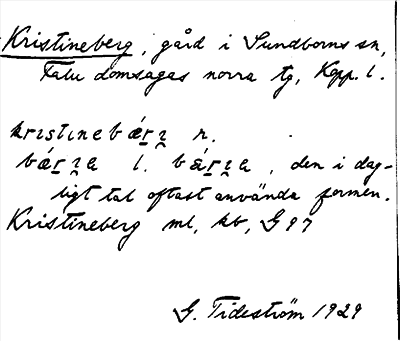 Kristineberg, gård i Sundborns sn,
Falu domsagas norra tg, Kopp. l.
kristinebǽr̲ı̯ n.
bǽr̲ı̯a l. bǽr̲ı̯a, den i dag-
ligt tal oftast använda formen.
Kristineberg ml, kb, G 97
G. Tideström 1929